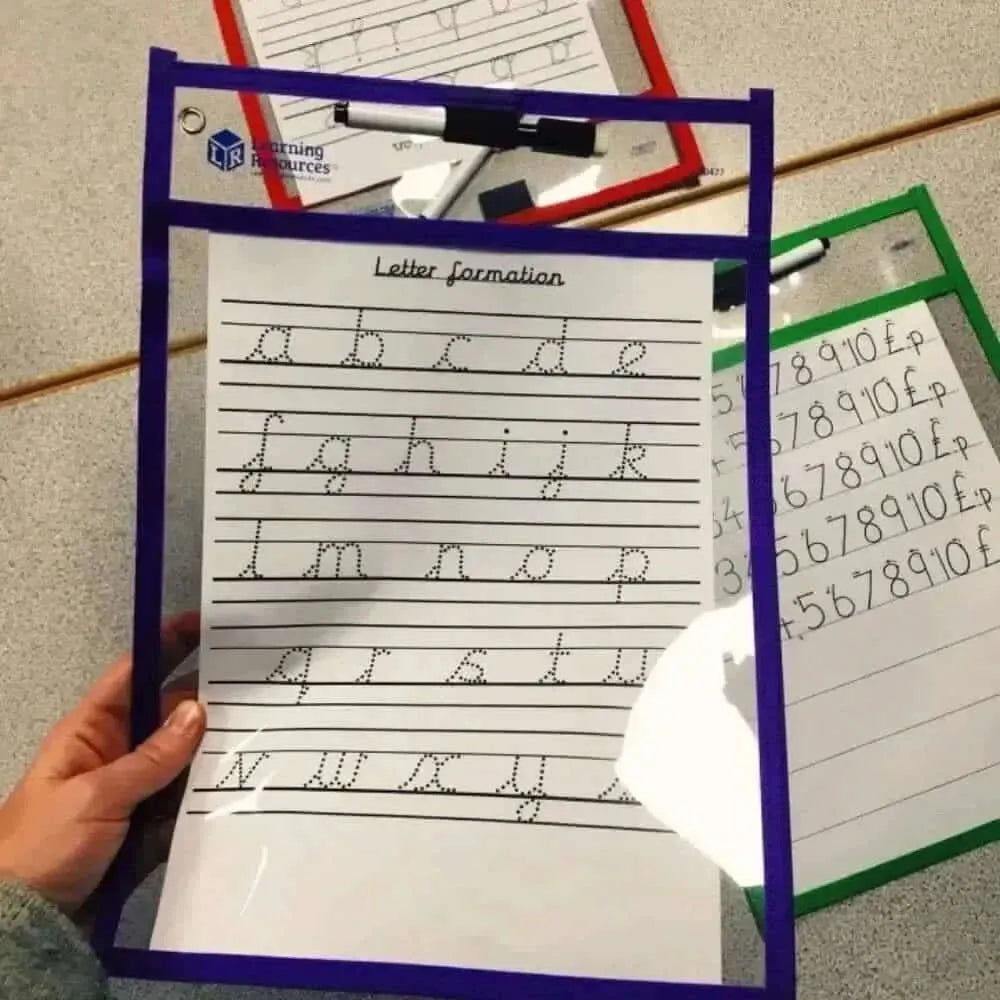 Learning
Resources
LR
Letter formation
a b c d e
f g h i j k
l m n o p
q r s t u
v w x y
5 6 7 8 9 10 £ p
5 6 7 8 9 10 £ p
4 5 6 7 8 9 10 £ p
3 4 5 6 7 8 9 10 £ p
4 5 6 7 8 9 10 £